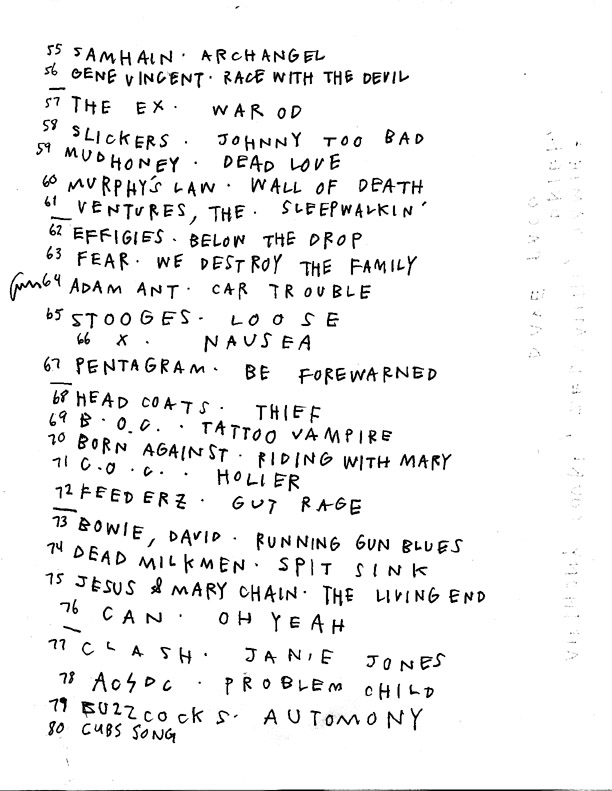 55 SAMHAIN · ARCHANGEL
56 GENE VINCENT · RACE WITH THE DEVIL
57 THE EX · WAR OD
58 SLICKERS · JOHNNY TOO BAD
59 MUDHONEY · DEAD LOVE
60 MURPHY'S LAW · WALL OF DEATH
61 VENTURES, THE · SLEEPWALKIN'
62 EFFIGIES · BELOW THE DROP
63 FEAR · WE DESTROY THE FAMILY
64 ADAM ANT · CAR TROUBLE
65 STOOGES · LOOSE
66 X · NAUSEA
67 PENTAGRAM · BE FOREWARNED
68 HEAD COATS · THIEF
69 B.O.C. · TATTOO VAMPIRE
70 BORN AGAINST · RIDING WITH MARY
71 C.O.C. · HOLIER
72 FEEDERZ · GUT RAGE
73 BOWIE, DAVID · RUNNING GUN BLUES
74 DEAD MILKMEN · SPIT SINK
75 JESUS & MARY CHAIN · THE LIVING END
76 CAN · OH YEAH
77 CLASH · JANIE JONES
78 AC⚡DC · PROBLEM CHILD
79 BUZZCOCKS · AUTOMONY
80 CUBS SONG